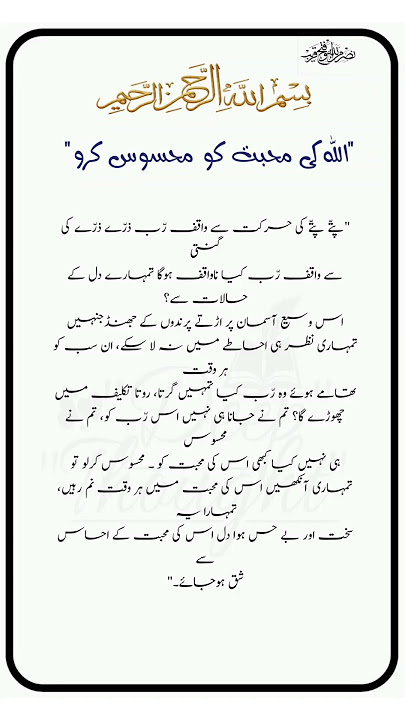 نصر من الله وفتح قريب
بسم الله الرحمن الرحيم
"اللہ کی محبت کو محسوس کرو"
"پتّے پتّے کی حرکت سے واقف رّب ذرّے ذرّے کی
گنتی
سے واقف رّب کیا ناواقف ہوگا تمہارے دل کے
حالات سے؟
اس وسیع آسمان پر اڑتے پرندوں کے جھنڈ جنہیں
تمہاری نظر ہی احاطے میں نہ لا سکے، ان سب کو
ہر وقت
تھامے ہوئے وہ رّب کیا تمہیں گرتا، روتا تکلیف میں
چھوڑے گا؟ تم نے جانا ہی نہیں اس رّب کو، تم نے
محسوس
ہی نہیں کیا کبھی اس کی محبت کو ۔ محسوس کرلو تو
تمہاری آنکھیں اس کی محبت میں ہر وقت نم رہیں،
تمہارا یہ
سخت اور بے حس ہوا دل اس کی محبت کے احساس
سے
شق ہوجائے۔"